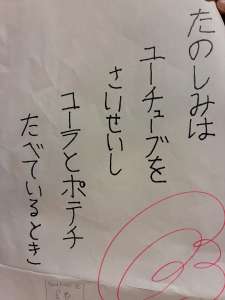 たのしみは
ユーチューブを
さいせいし
コーラとポテチ
たべているとき